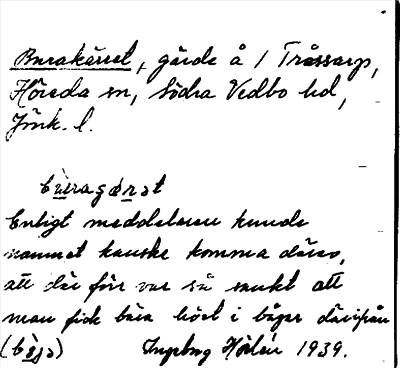 Burakärret, gärde å 1 Tråssarp,
Höreda sn, Södra Vedbo hd,
Jönk. l.
Enligt meddelaren kunde
namnet kanske komma därav,
att där förr var så sankt att
man fick bära höet i bågar därifrån
Ingeborg Hörlén 1939.